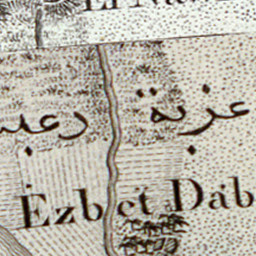 عزبة دعبس
Ezbet Dab